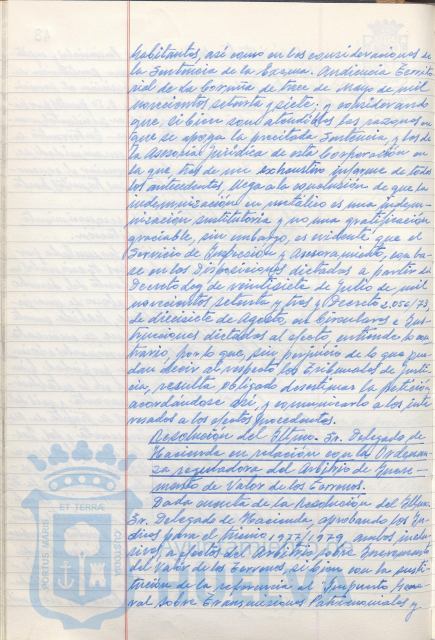 habitantes, así como en los considerandos de
la Sentencia de la Excma. Audiencia Territo-
rial de La Coruña de trece de Mayo de mil
novecientos setenta y siete; y considerando
que, si bien son atendibles las razones en
que se apoya la precitada Sentencia, y los de
la Asesoría Jurídica de esta Corporación en
la que tras de un exhaustivo informe de todos
los antecedentes, llega a la conclusión de que la
indemnización en metálico es una indem-
nización sustitutoria y no una gratificación
graciable, sin embargo, es evidente que el
Servicio de Inspección y Asesoramiento, con ba-
se en las Disposiciones dictadas a partir del
Decreto Ley de veintisiete de Julio de mil
novecientos setenta y tres y Decreto 2.056/73,
de diecisiete de Agosto, en Circulares e Ins-
trucciones dictadas al efecto, entiende lo con-
trario, por lo que, sin perjuicio de lo que pue-
dan decir al respecto los Tribunales de Justi-
cia, resulta obligado desestimar la petición
acordándose así, y comunicarlo a los inte-
resados a los efectos procedentes.
Resolución del Iltmo. Sr. Delegado de
Hacienda en relación con la Ordenan-
za reguladora del Arbitrio de Incre-
mento de Valor de los Terrenos.
Dada cuenta de la Resolución del Iltmo.
Sr. Delegado de Hacienda, aprobando los Ín-
dices para el trienio 1977/1979, ambos inclu-
sives, a efectos del Arbitrio sobre Incremento
del Valor de los Terrenos, si bien con la susti-
tución de la referencia al Impuesto Gene-
ral sobre Transmisiones Patrimoniales y
PORTUS MARIS ET TERRAE CUSTODIA
HUELVA